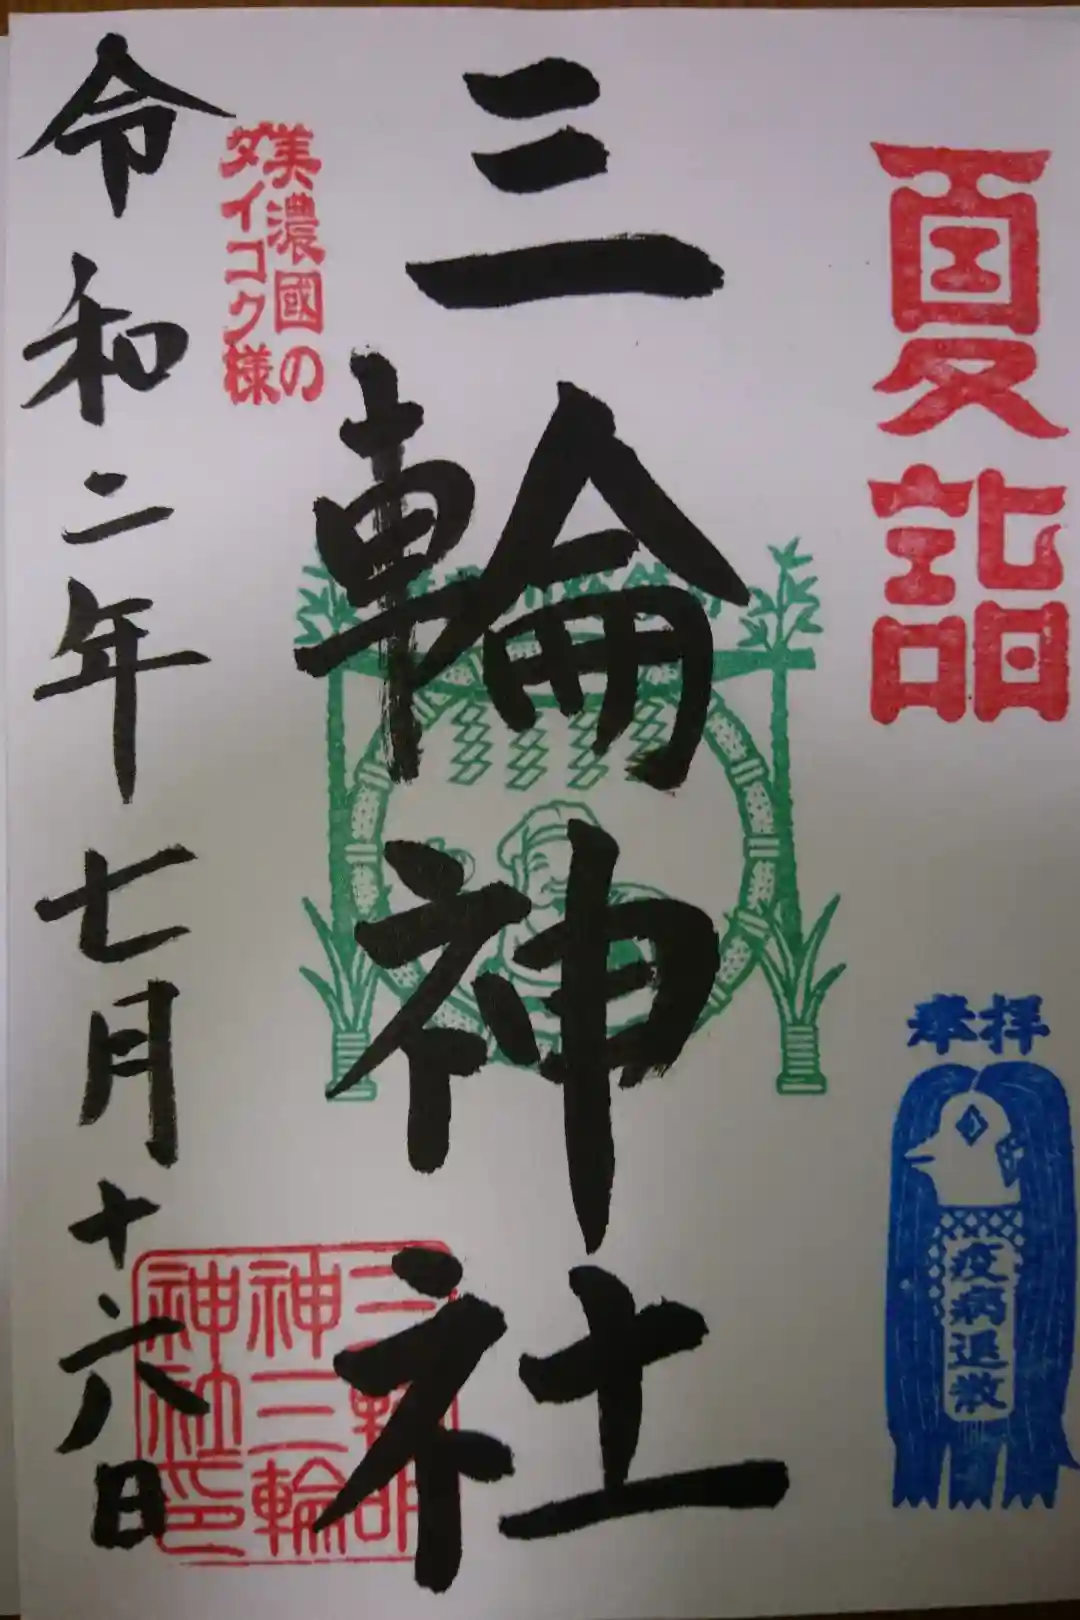 夏詣
奉拝
疫病退散
三輪神社
美濃國の
ダイコク様
令和二年七月十六日
三輪明
神三輪
神社印